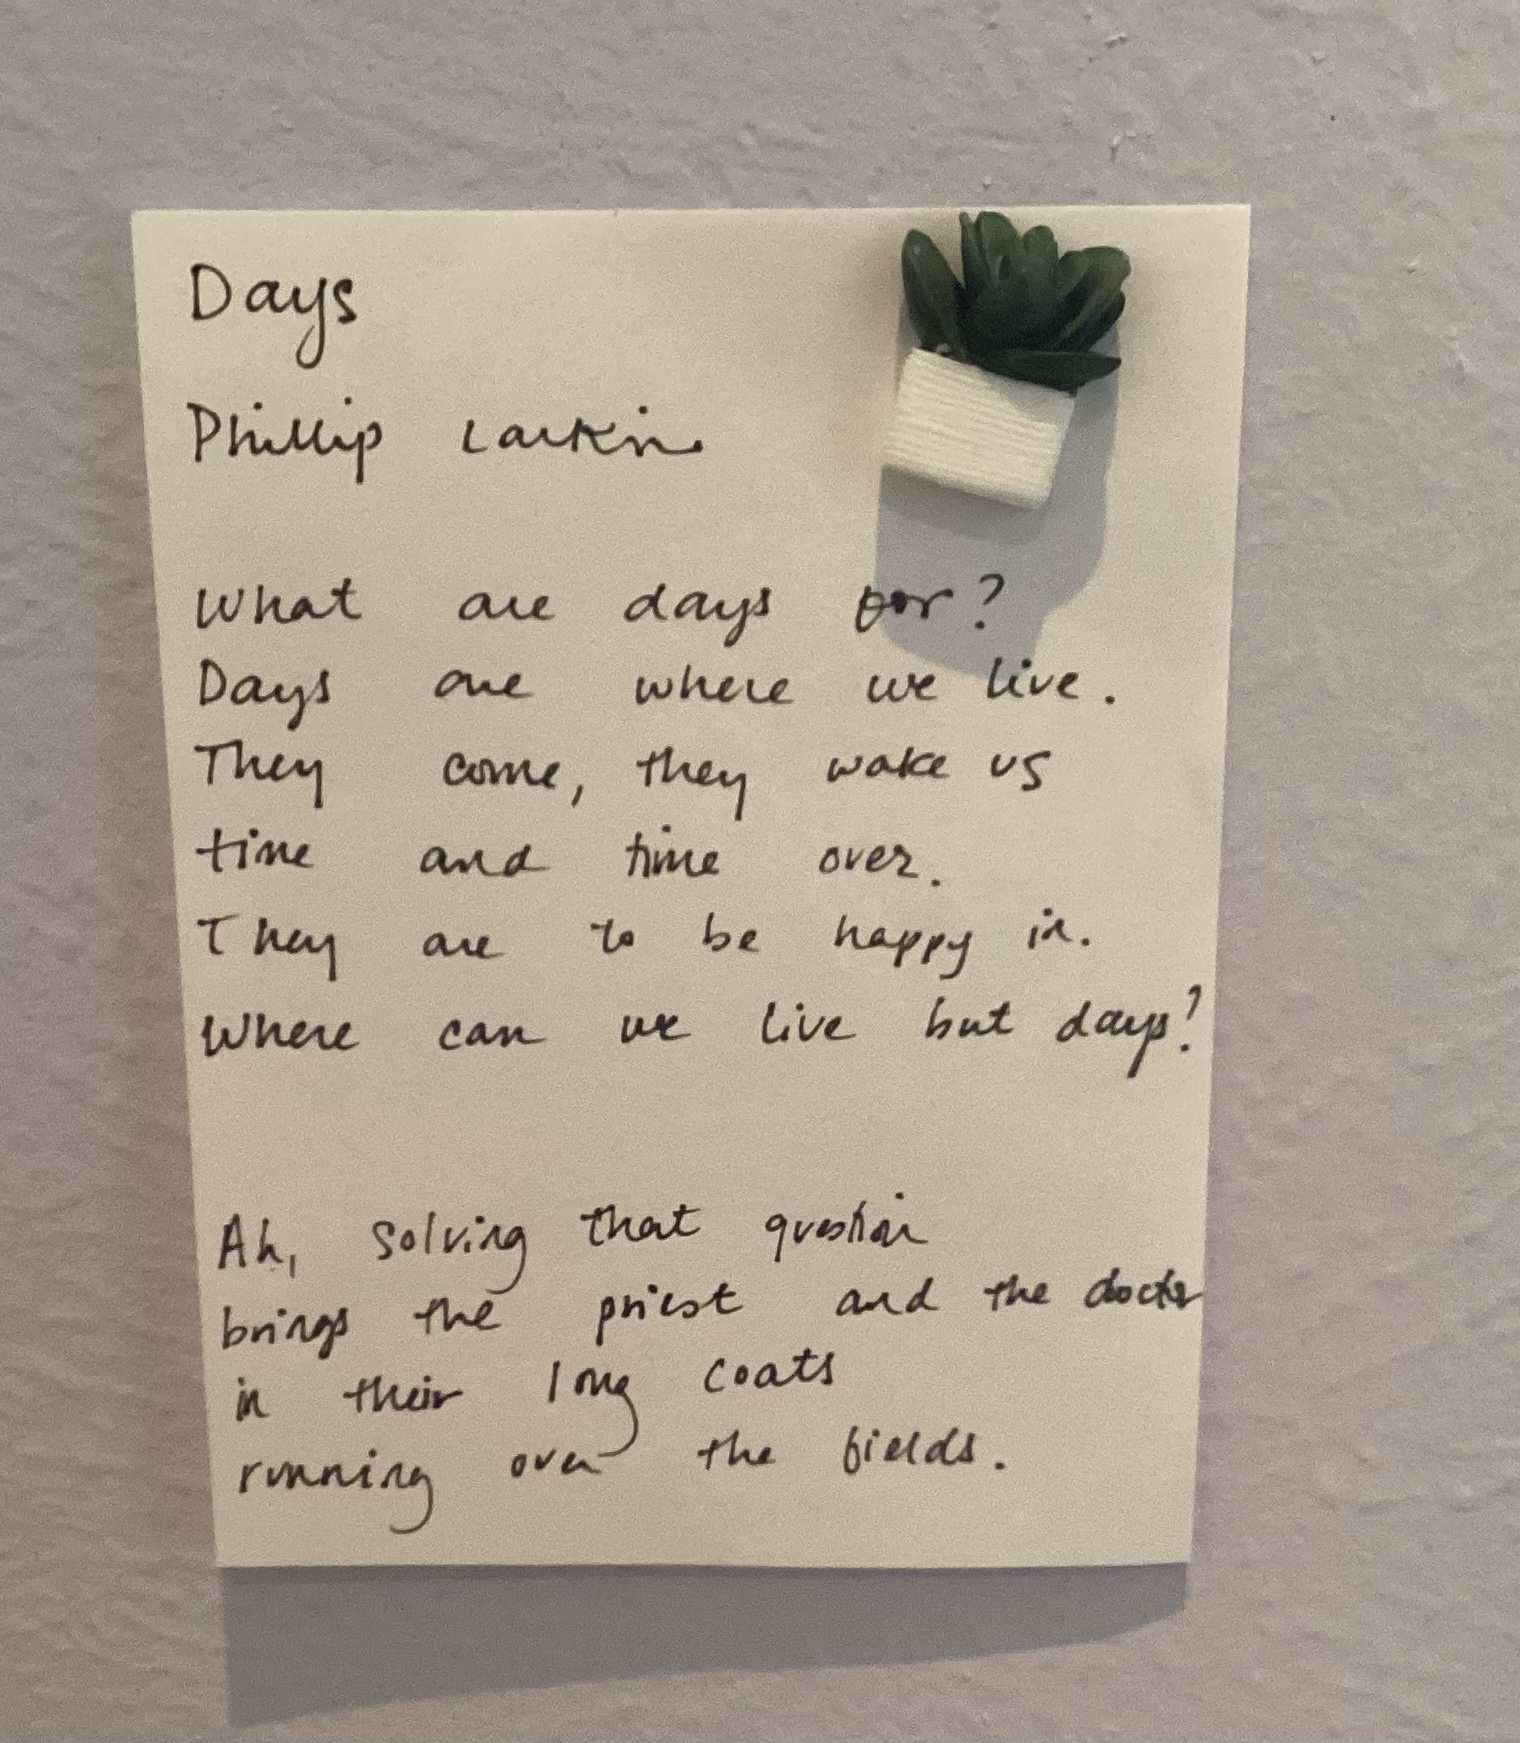 Days
Phillip Larkin
What are days for?
Days are where we live.
They come, they wake us
time and time over.
They are to be happy in.
Where can we live but days?
Ah, solving that question
brings the priest and the doctor
in their long coats
running over the fields.